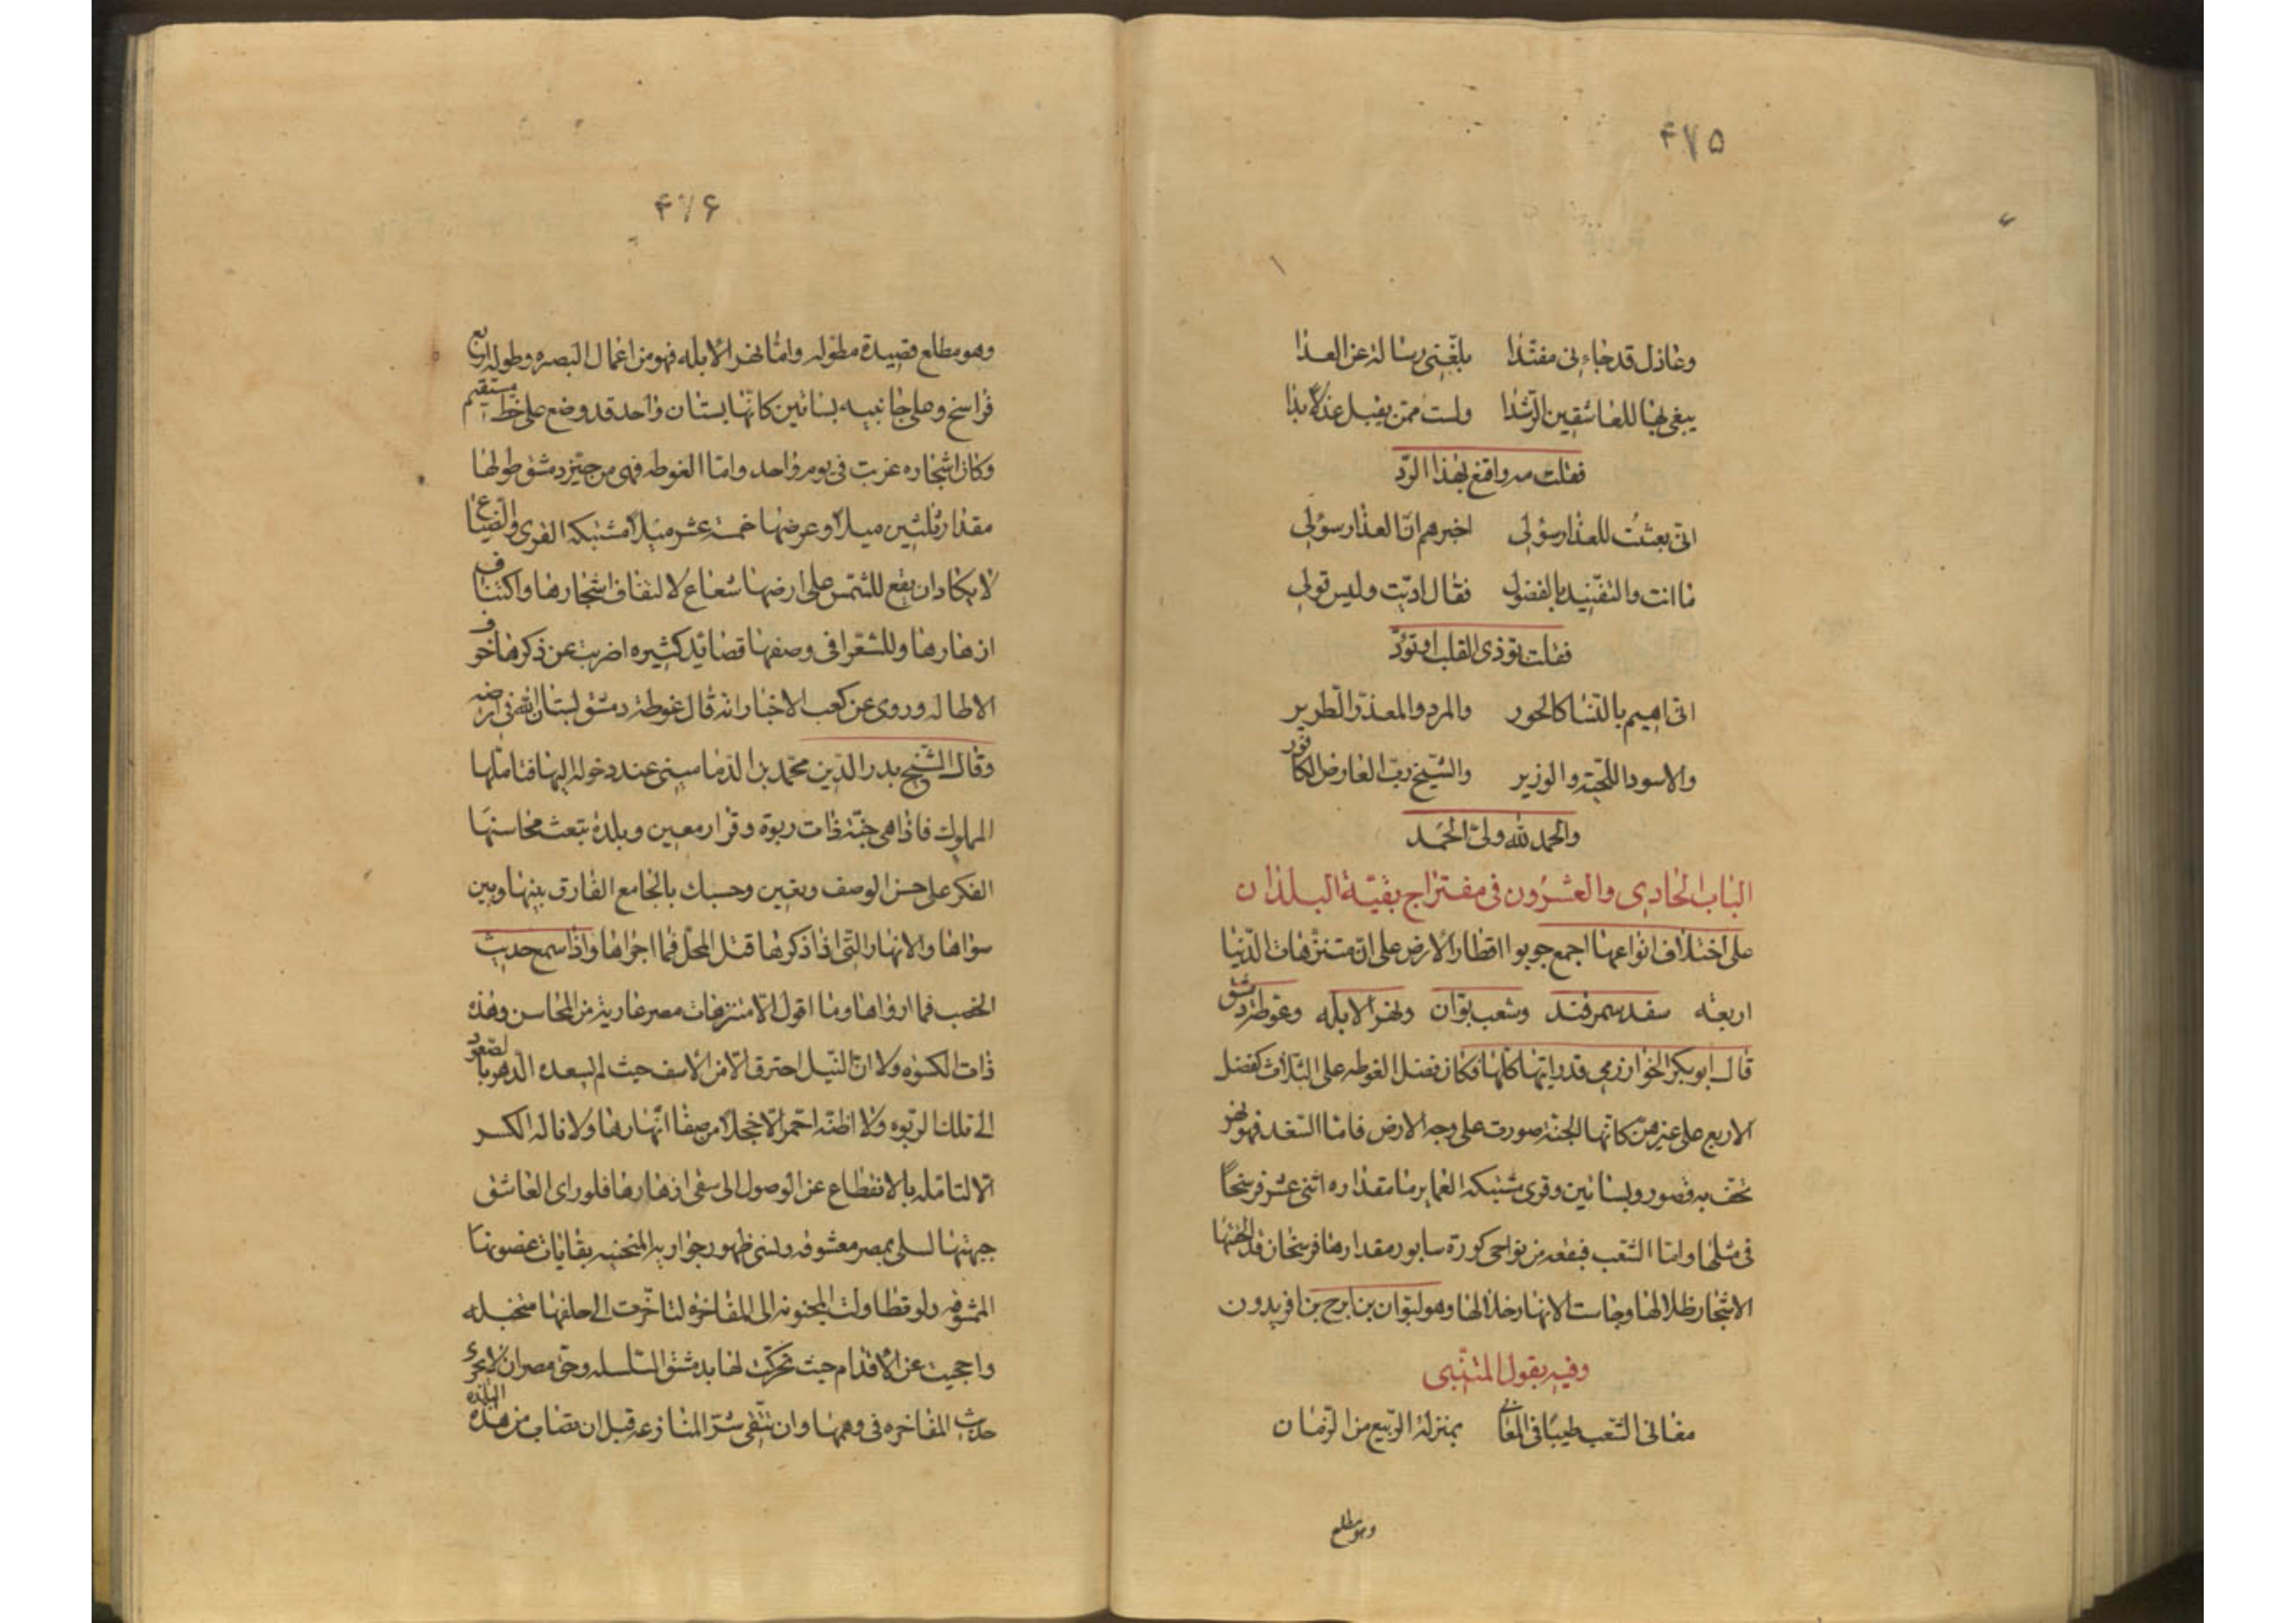 ۴۷۵
وعاذل قد جاءنى مفندا بلغنى رسالة عن العدا
يبغى بها للعاشقين الرشدا ولست ممن يقبل عذلا بذا
فقلت مه واقنع بهذا الرد
انى بعثت للعذار سؤلى اخبرهم ان العذار سؤلى
ما انت والتفنيد بالفضول فقال ادبت وليس قولى
فقلت تؤذى القلب او تود
انى اهيم بالنسا كالحور والمرد والمعذر الطرير
والاسود اللحية والوزير والشيخ رب العارض الكافور
والحمد لله ولى الحمد
الباب الحادى والعشرون فى مفتراج بقية البلدان
على اختلاف انواعها اجمع جوبوا اقطار الارض على ان متنزهات الدنيا
اربعة سغد سمرقند وشعب بوان ونهر الابله وغوطة دمشق
قال ابو بكر الخوارزمى قد رايتها كلها فكان فضل الغوطه على الثلاث كفضل
الاربع على غيرهن كانها الجنة صورت على وجه الارض فاما السغد فهو نهر
تحف به قصور وبساتين وقرى مشتبكه العماير ما مقداره اثنى عشر فرسخا
فى مثلها واما الشعب فبقعه من نواحى كورة سابور مقدارها فرسخان قد الحفتها
الاشجار ظلالها وجاست الانهار خلالها وهو لبوان بن ايرج بن افريدون
وفيه يقول المتنبى
مغانى الشعب طيبا فى المغانى بمنزلة الربيع من الزمان
وهو مطلع
۴۷۶
وهو مطلع قصيدة مطوله واما نهر الابله فهو من اعمال البصره وطوله اربع
فراسخ وعلى جانبيه بساتين كانها بستان واحد قد وضع على خط مستقيم
وكان اشجاره غرست فى يوم واحد واما الغوطه فهى من حيز دمشق طولها
مقدار ثلثين ميلا وعرضها خمسة عشر ميلا مشتبكه القرى والضياع
لا يكاد ان يقع للشمس على ارضها شعاع لالتفاف اشجارها واكتناف
ازهارها وللشعرا فى وصفها قصائد كثيره اضربت عن ذكرها خوف
الاطاله وروى عن كعب الاخبار انه قال غوطة دمشق بستان الله فى ارضه
وقال الشيخ بدر الدين محمد بن الدمامينى عند دخوله اليها فتاملها
المملوك فاذا هى جنة ذات ربوة وقرار معين وبلدة تبعث محاسنها
الفكر على حسن الوصف وتعين وحسبك بالجامع الفارق بينها وبين
سواها والانهار التى اذا ذكرها قتل المحل فما اجراها واذا سمع حديث
الخصب فما ارواها وما اقول الا متنزهات مصر عارية من المحاسن وهذه
ذات الكسوه ولا ان النيل احترق الا من الاسف حيث لم يسعده الدهر بالصعود
الى تلك الربوه ولا اظنه احمر الا خجلا من صفا انهارها ولا ناله الكسر
الا لتامله بالانقطاع عن الوصول الى سقى ازهارها فلو راى العاشق
جبهتها لسلى بمصر معشوقه ونسى ظهور جواريه المنحنيه بقايات غصونها
الممشوقه ولو تطاولت المجنونه الى المفاخره لتاخرت الى خلفها منخبله
واحجبت عن الاقدام حيث تحركت لها بدمشق السلسله وحق مصر ان لا تجرى
حديث المفاخره فى وهمها وان تتقى شر المنازعه قبل ان تصاب من هذه البلده